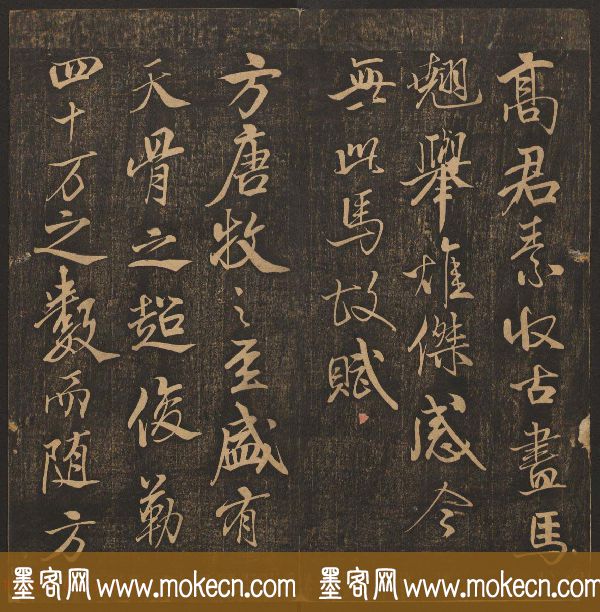 高君素收古畫馬
翹舉雄傑感今
無此馬故賦
方唐牧之至盛有
天骨之超俊勒
四十万之數而随方
墨客网 www.mokecn.com 墨客网 www.mokecn.com